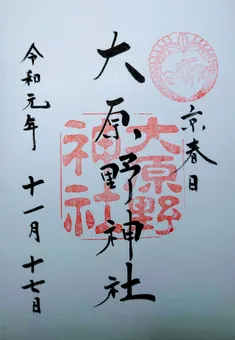 京春日
大原野神社
大原野
神社
令和元年 十一月 十七日